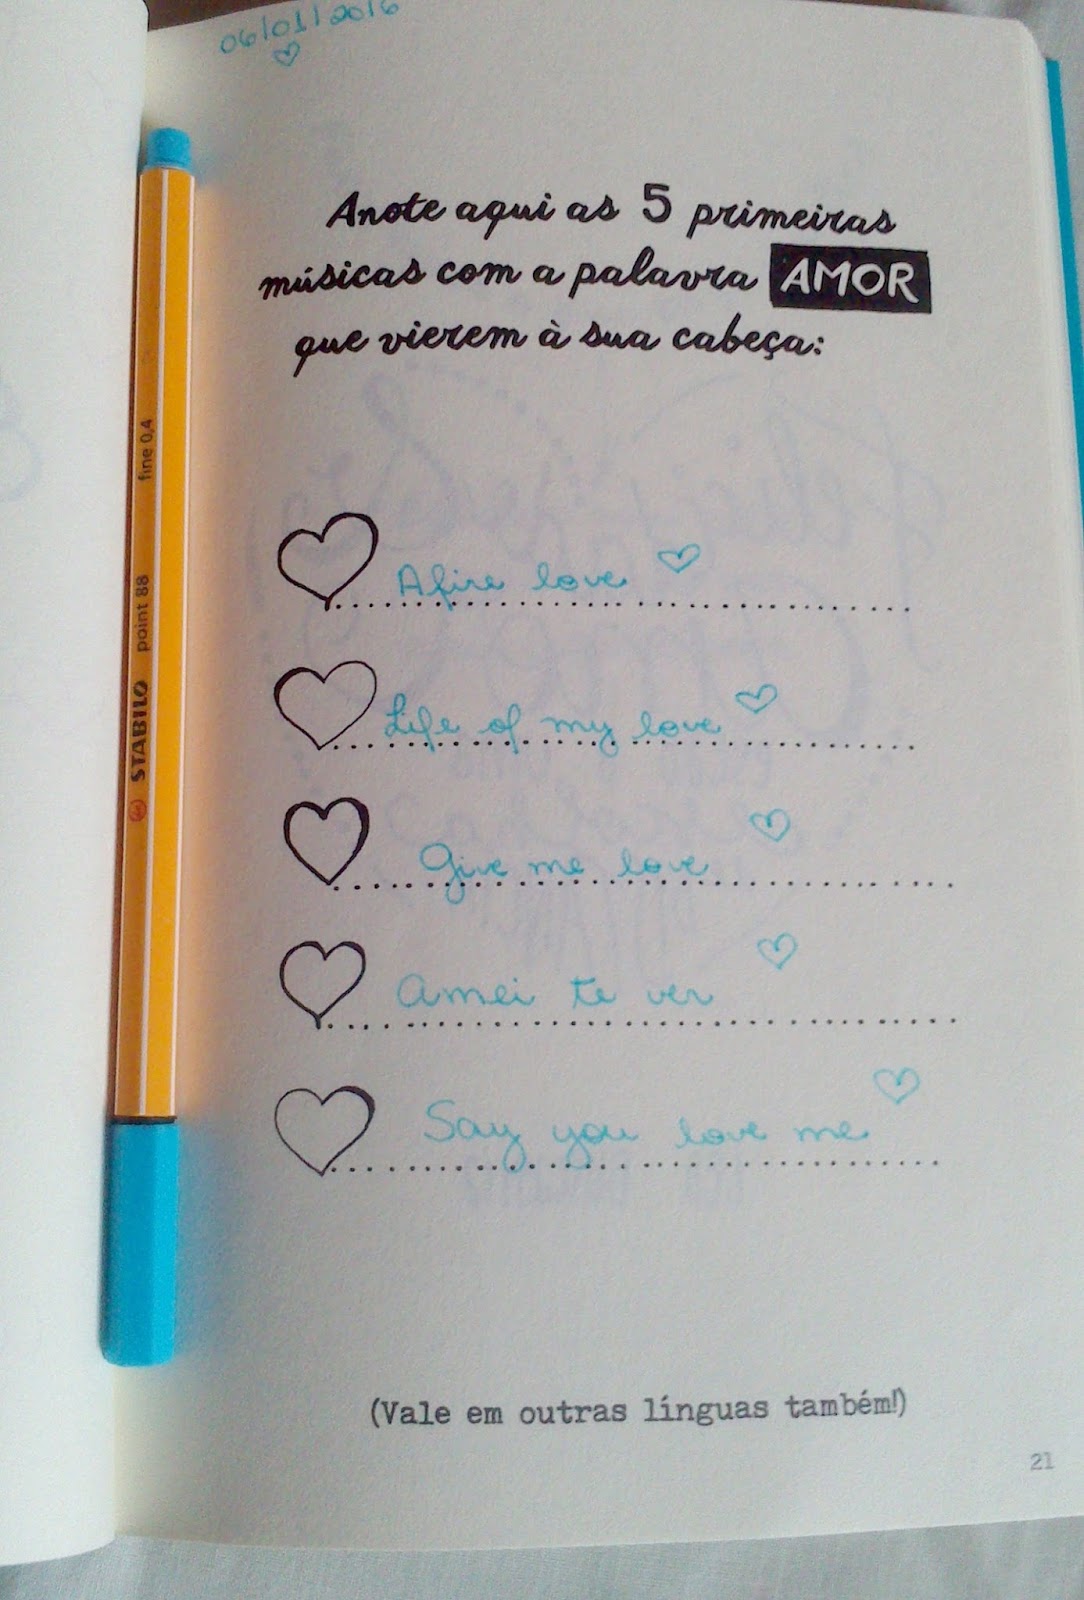 06/01/2016
Anote aqui as 5 primeiras
músicas com a palavra AMOR
que vierem à sua cabeça:
Afire love
Life of my love
Give me love
Amei te ver
Say you love me
(Vale em outras línguas também!)
21
STABILO point 88 fine 0,4